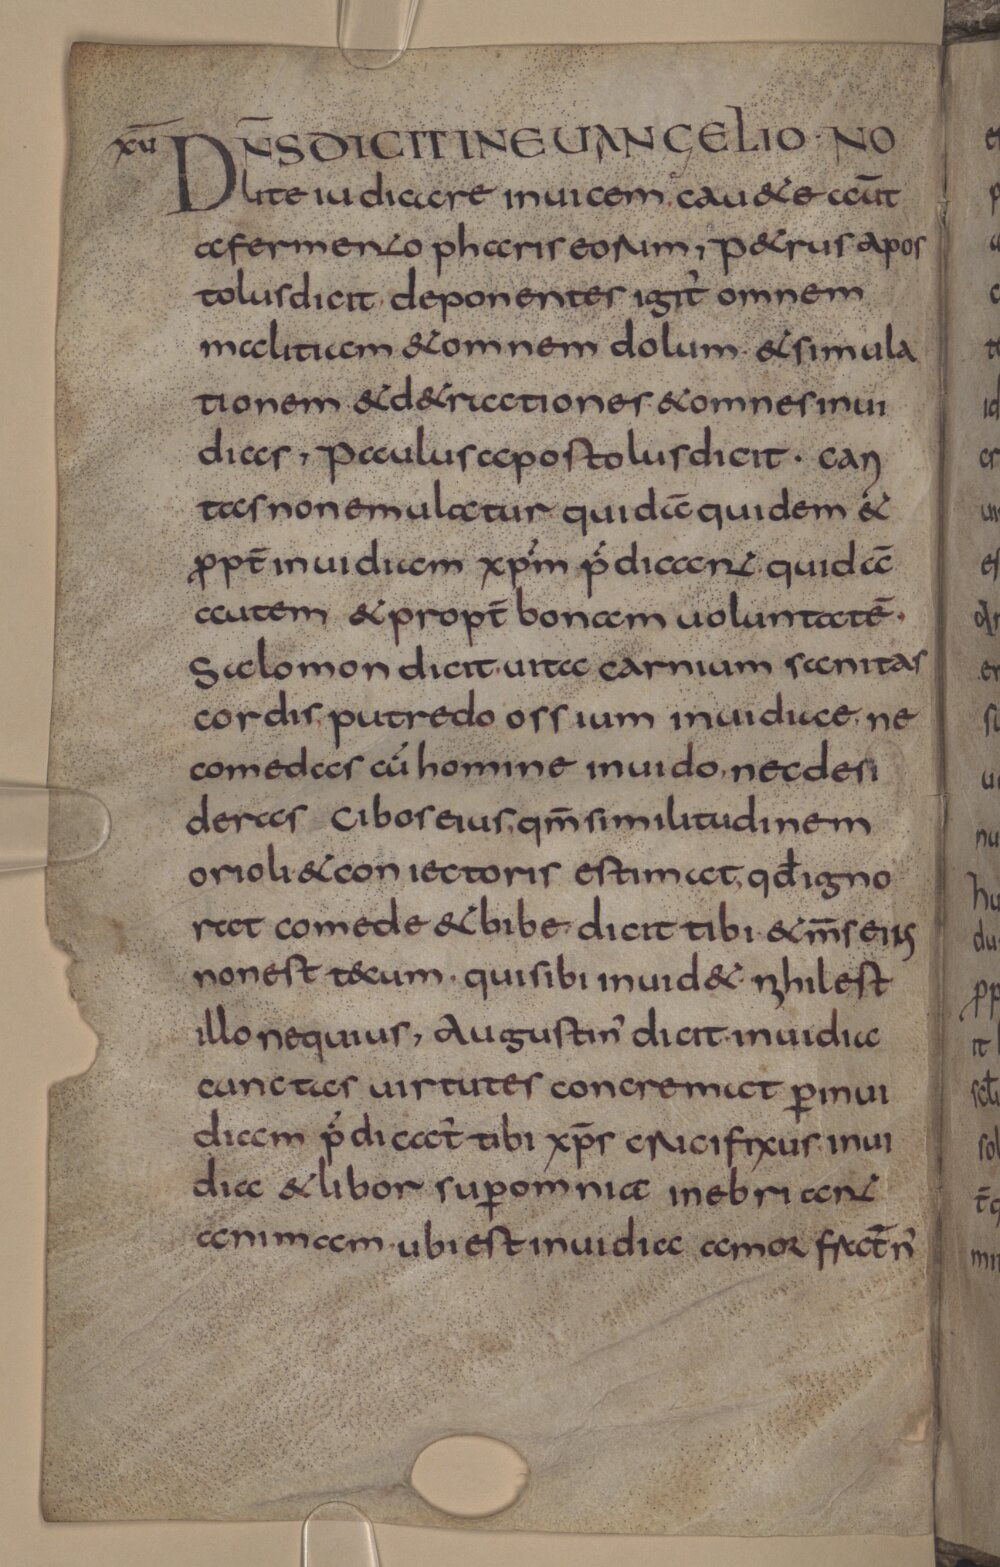 xv̄ DN̄S DICIT IN EUANGELIO · NO
lite iudicare inuicem, cauete aut̄
a fermento pharis eorum, Petrus apos
tolus dicit, deponentes igit̓ omnem
malitiam & omnem dolum & simula
tionem & detractiones & omnes inui
dias, Paulus apostolus dicit · cari
tas non emulatur quidā quidem &
ꝓpt̄ inuidiam xp̄m p̓dicant quidā
autem & propt̄ bonam uoluntatē ·
Salomon dicit · uita carnium sanitas
cordis, putredo ossium inuidia, ne
comedas cū homine inuido, nec desi
deras cibos eius, qm̄ similitudinem
orioli & coniectoris estimat, qđ igno
rat comede & bibe dicit tibi & m̄s eius
non est tecum · qui sibi inuidet nihil est
illo nequius, Augustin̓ dicit · inuidia
cunctas uirtutes concremat ꝑ inui
diam p̓dicat̓ tibi xp̄s crucifixus inui
dia & libor suꝑ omnia inebriant
animam · ubi est inuidia amor frat̄n̓